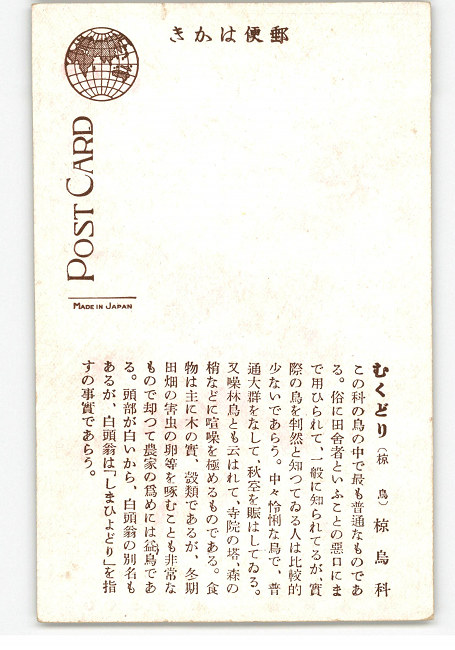 きかは便郵
POST CARD
MADE IN JAPAN
むくどり（椋鳥）椋鳥科
この科の鳥の中で最も普通なものであ
る。俗に田舎者といふことの悪口にま
で用ひられて、一般に知られてるが、實
際の鳥を判然と知つてゐる人は比較的
少ないであらう。中々怜悧な鳥で、普
通大群をなして、秋空を賑はしてゐる。
又噪林鳥とも云はれて、寺院の塔、森の
梢などに喧噪を極めるものである。食
物は主に木の實、穀類であるが、冬期
田畑の害虫の卵等を啄むことも非常な
もので却つて農家の爲めには益鳥であ
る。頭部が白いから、白頭翁の別名も
あるが、白頭翁は「しまひよどり」を指
すの事實であらう。